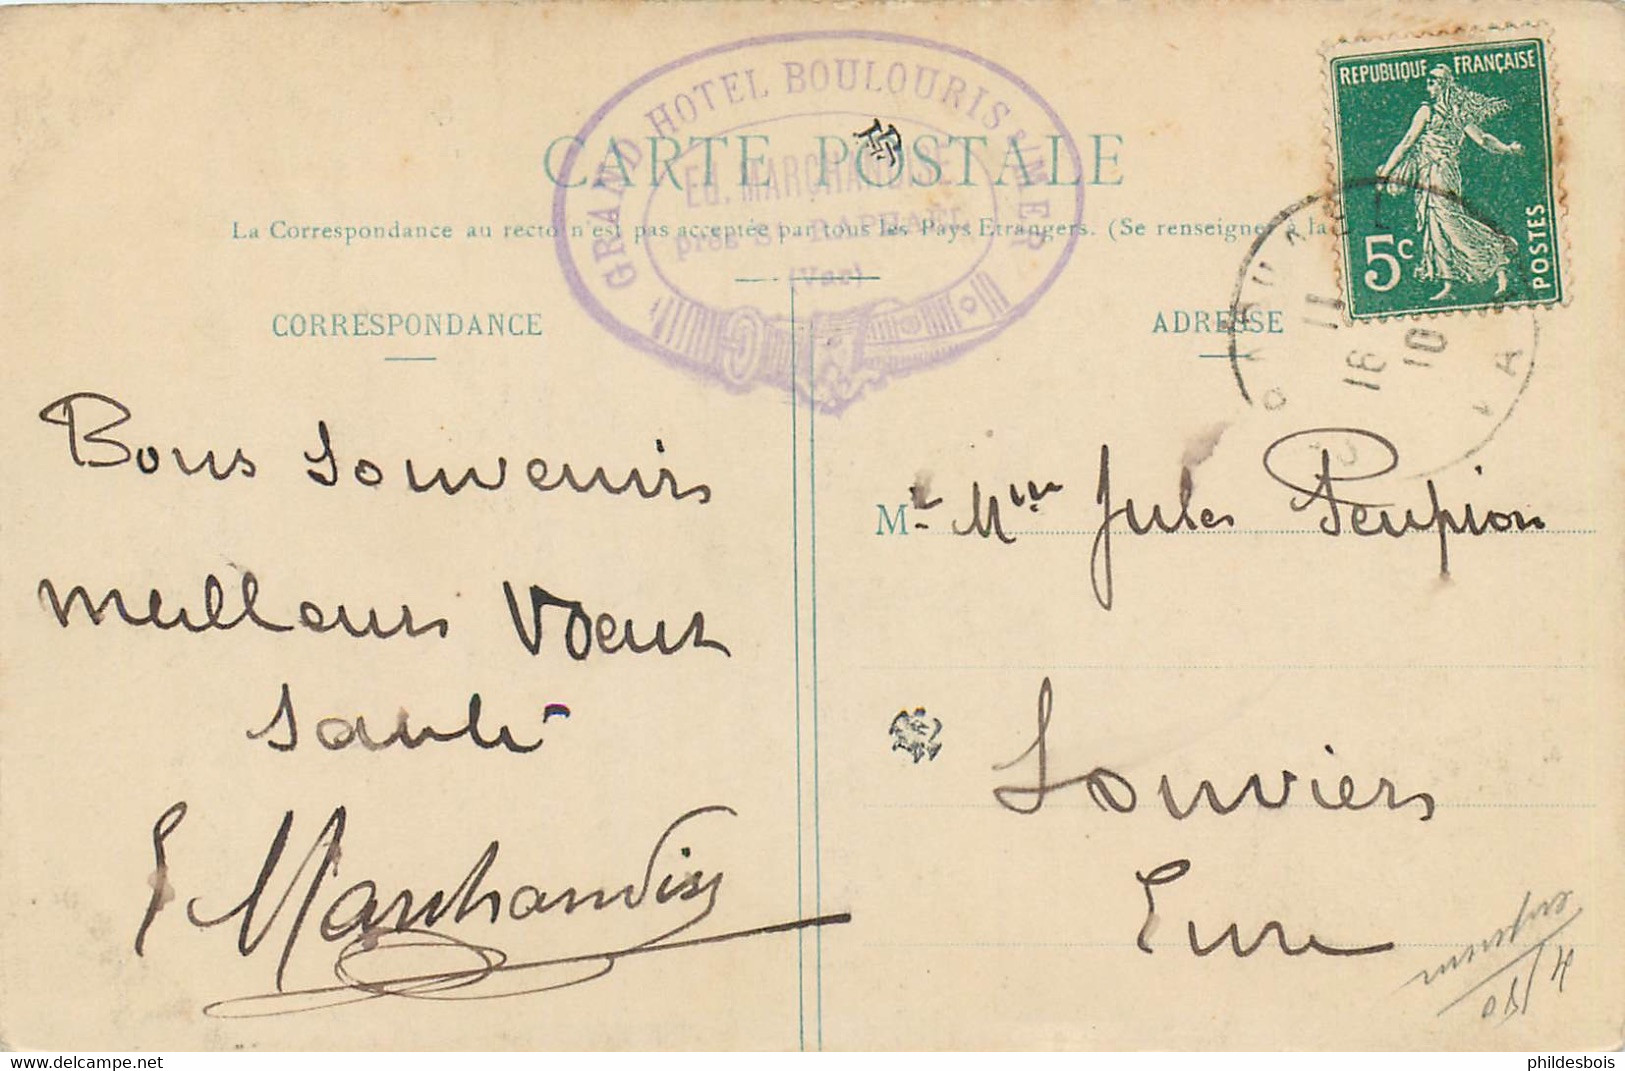 GRAND HOTEL BOULOURIS s/MER
Ed. MARCHANDISE
près St RAPHAEL
(Var)
CARTE POSTALE
La Correspondance au recto n'est pas acceptée par tous les Pays Etrangers. (Se renseigner à la
REPUBLIQUE FRANÇAISE
5c
POSTES
CORRESPONDANCE
ADRESSE
11
16
10
A
Bons souvenirs
meilleurs voeux
santé
E Marchandise
Mr Mme Jules Peupion
Louviers
Eure
phildesbois